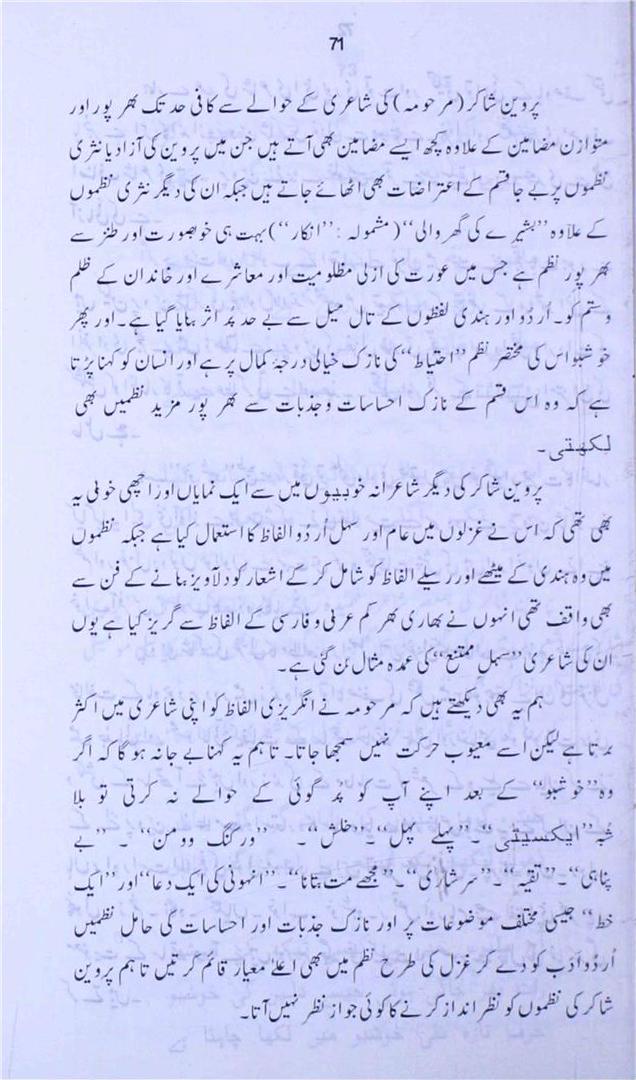 71
پروین شاکر (مرحومہ) کی شاعری کے حوالے سے کافی حد تک بھر پور اور
متوازن مضامین کے علاوہ کچھ ایسے مضامین بھی آتے ہیں جن میں پروین کی آزاد یا نثری
نظموں پر بے جا قسم کے اعتراضات بھی اٹھائے جاتے ہیں جبکہ ان کی دیگر نثری نظموں
کے علاوہ ”بشیرے کی گھر والی“ (مشمولہ: ”انکار“) بہت ہی خوبصورت اور طنز سے
بھر پور نظم ہے جس میں عورت کی ازلی مظلومیت اور معاشرے اور خاندان کے ظلم
و ستم کو۔ اُردو اور ہندی لفظوں کے تال میل سے بے حد پُر اثر بنایا گیا ہے۔ اور پھر
خوشبو اس کی مختصر نظم ”احتیاط“ کی نازک خیالی درجہٴ کمال پر ہے اور انسان کو کہنا پڑتا
ہے کہ وہ اس قسم کے نازک احساسات و جذبات سے بھر پور مزید نظمیں بھی
لکھتی۔
پروین شاکر کی دیگر شاعرانہ خوبیوں میں سے ایک نمایاں اور اچھی خوبی یہ
بھی تھی کہ اس نے غزلوں میں عام اور سہل اُردو الفاظ کا استعمال کیا ہے جبکہ نظموں
میں وہ ہندی کے میٹھے اور رسیلے الفاظ کو شامل کر کے اشعار کو دلآویز بنانے کے فن سے
بھی واقف تھی انہوں نے بھاری بھر کم عربی و فارسی کے الفاظ سے گریز کیا ہے یوں
ان کی شاعری ”سہل ممتنع“ کی عمدہ مثال بن گئی ہے۔
ہم یہ بھی دیکھتے ہیں کہ مرحومہ نے انگریزی الفاظ کو اپنی شاعری میں اکثر
برتا ہے لیکن اسے معیوب حرکت نہیں سمجھا جاتا۔ تاہم یہ کہنا بے جا نہ ہوگا کہ اگر
وہ ”خوشبو“ کے بعد اپنے آپ کو پُر گوئی کے حوالے نہ کرتی تو بلا
شبہ ”ایکسیٹی“۔ ”پہلے پہل“۔ ”خلش“۔ ”ورکنگ وومن“۔ ”بے
پناہی“۔ ”تقیہ“۔ ”سرشاری“۔ ”مجھے مت بتانا“۔ ”انہونی کی ایک دعا“ اور ”ایک
خط“ جیسی مختلف موضوعات پر اور نازک جذبات اور احساسات کی حامل نظمیں
اُردو ادب کو دے کر غزل کی طرح نظم میں بھی اعلےٰ معیار قائم کرتیں تاہم پروین
شاکر کی نظموں کو نظر انداز کرنے کا کوئی جواز نظر نہیں آتا۔